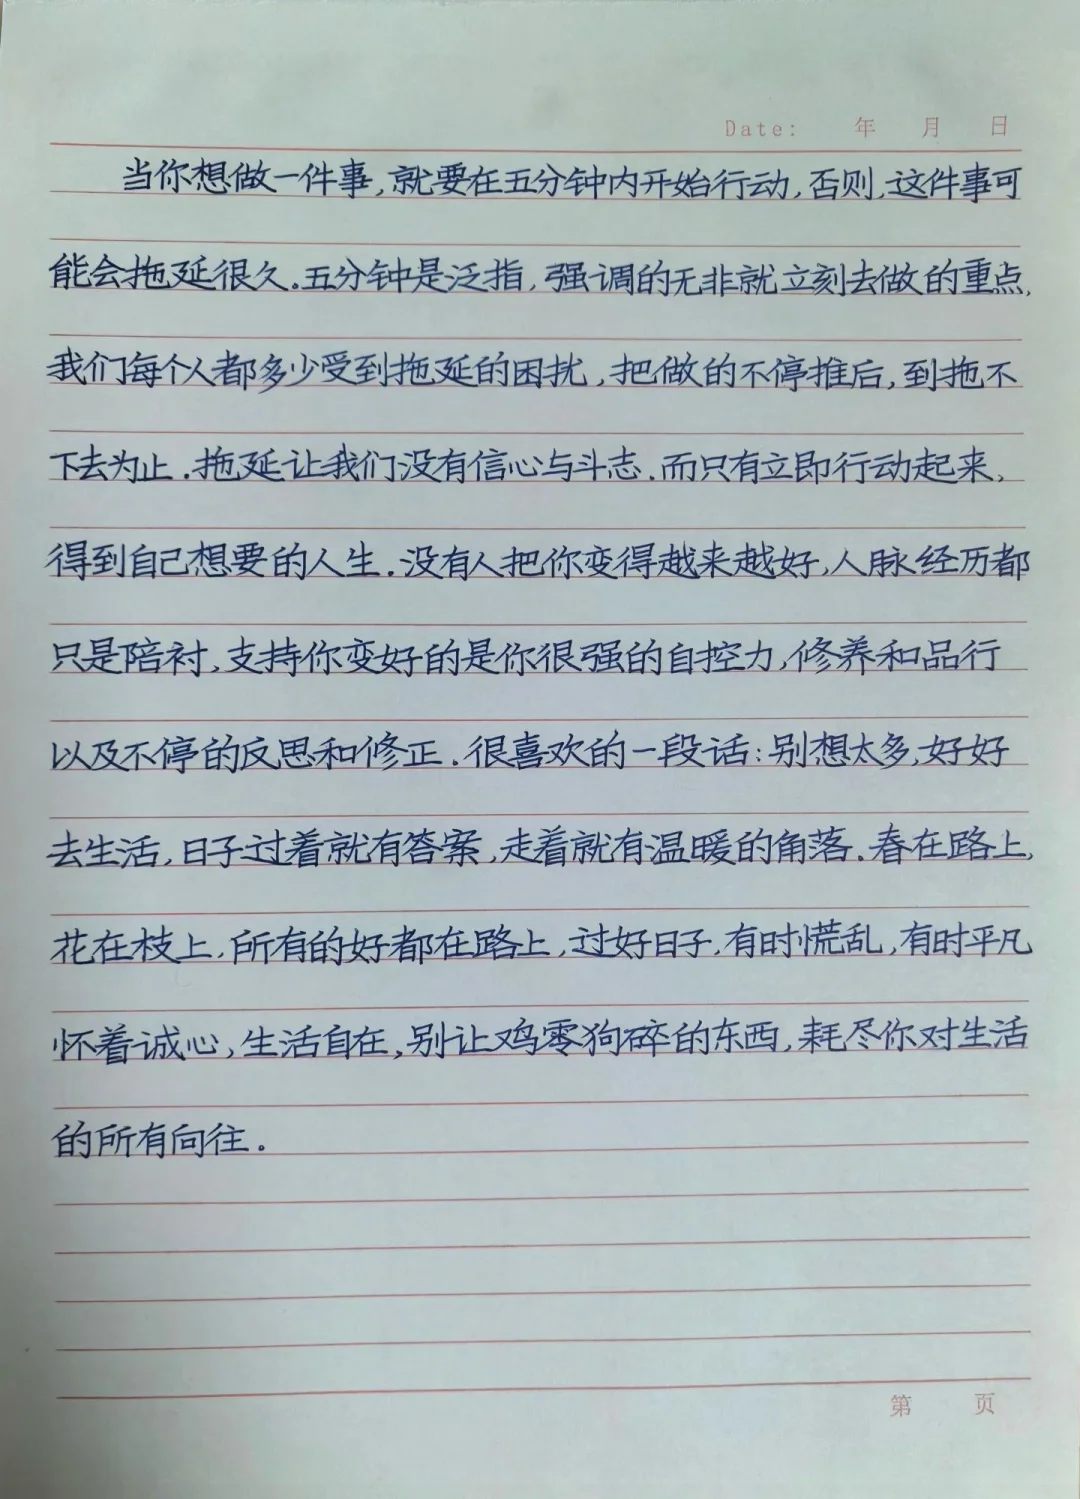 Date: 年 月 日
当你想做一件事,就要在五分钟内开始行动,否则,这件事可
能会拖延很久.五分钟是泛指,强调的无非就立刻去做的重点,
我们每个人都多少受到拖延的困扰,把做的不停推后,到拖不
下去为止.拖延让我们没有信心与斗志.而只有立即行动起来,
得到自己想要的人生.没有人把你变得越来越好,人脉经历都
只是陪衬,支持你变好的是你很强的自控力,修养和品行
以及不停的反思和修正.很喜欢的一段话:别想太多,好好
去生活,日子过着就有答案,走着就有温暖的角落.春在路上,
花在枝上,所有的好都在路上,过好日子,有时慌乱,有时平凡
怀着诚心,生活自在,别让鸡零狗碎的东西,耗尽你对生活
的所有向往.
第 页